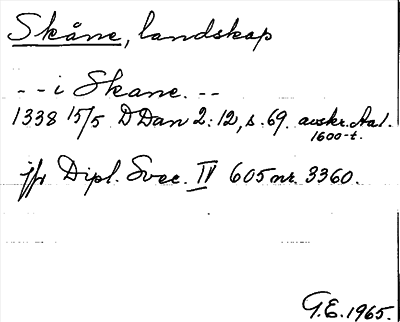 Skåne, landskap
-- i Skane. --
1338 15/5 DDan 2:12, s. 69. avskr. Aa 1.
1600-t.
jfr Dipl. Svec. IV 605 nr. 3360.
G.E. 1965.